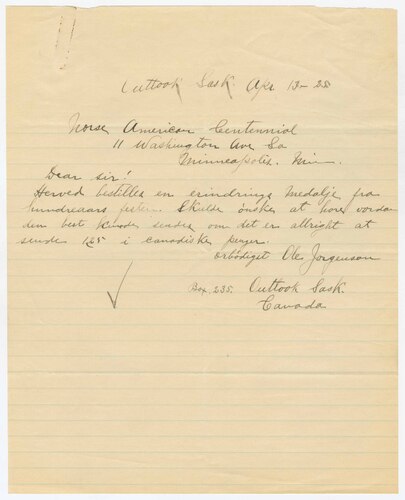 Outlook Sask. Apr 13-25
Norse American Centennial
11 Washington Ave So
Minneapolis. Min.
Dear sir!
Herved bestilles en erindrings Medalje fra
hundreaars festen. Skulde ønske at høre vordan
den best kunde sendes om det er allright at
sende 125 i canadiske penger.
ærbødiget Ole Jorgenson
Box, 235. Outlook Sask.
Canada